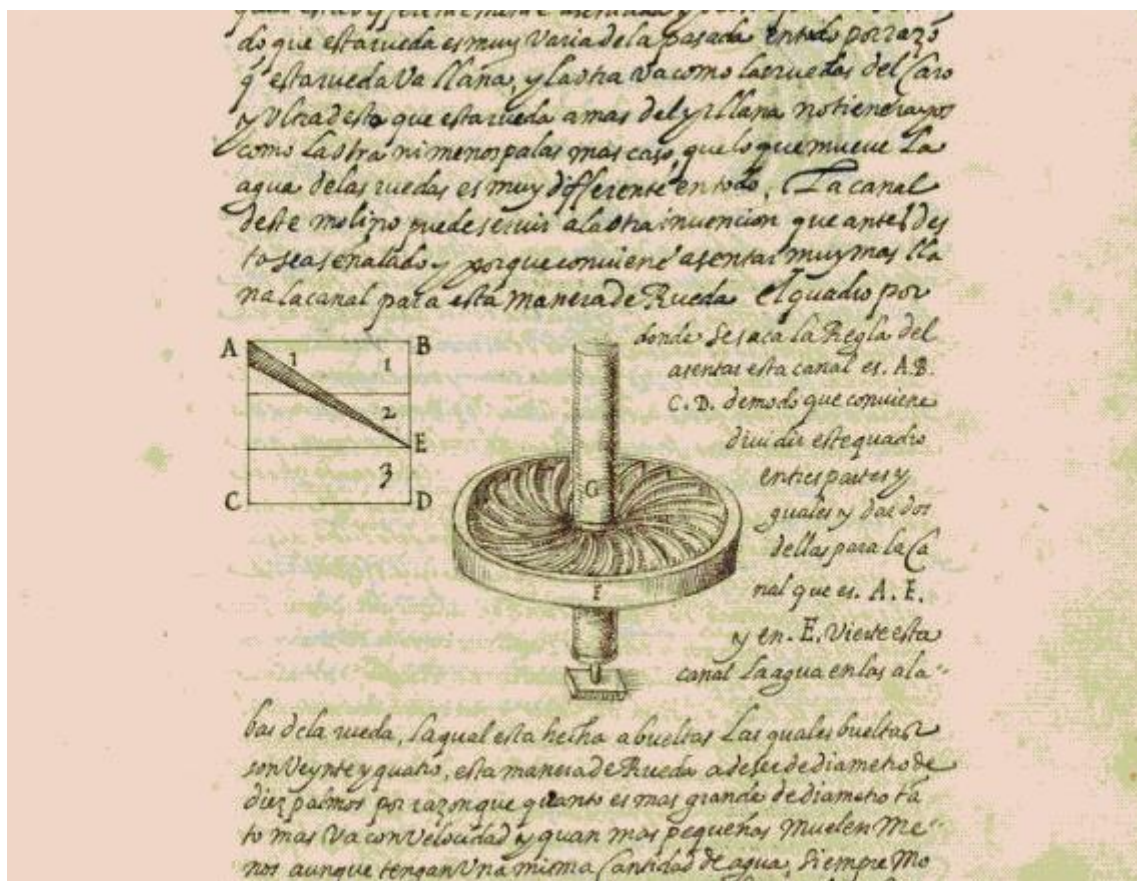 do que esta rueda es muy varia dela pasada entodo por razo
q̃ esta rueda va llana, y la otra va como las ruedas del Caro
y Ultra desto que esta rueda a mas del yr llana no tiene rayos
como la otra ni menos palas mas caso, que lo que mueve la
agua delas ruedas es muy differente en todo, La canal
deste molino puede servir ala otra invencion que antes des
to sea señalado y porque conviene asentar muy mas lla
na la canal para esta manera de Rueda el quadro por
donde se saca la Regla del
asentar esta canal es. A.B.
C.D. de modo que conviene
dividir este quadro
en tres partes y
guales y dar dos
dellas para la Ca
nal que es. A. E.
y en. E. vierte esta
canal la agua en los ala-
bas dela rueda, la qual esta hecha a bueltas las quales bueltas
son veynte y quatro, esta manera de Rueda a de ser de diametro de
diez palmos por razon que quanto es mas grande de diametro tã
to mas va con velocidad y quan mas pequeñas muelen me-
nos aunque tengan una misma Cantidad de agua, siempre mo
A
1
1
B
2
E
3
C
D
G
F